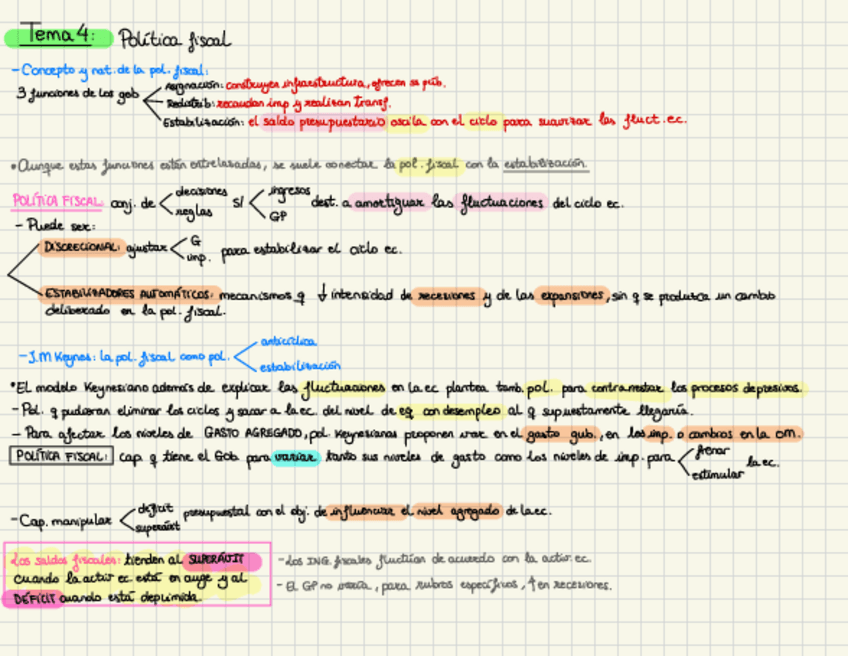 Tema 4: Política fiscal
- Concepto y nat. de la pol. fiscal:
3 funciones de los gob
Asignación: construyen infraestructura, ofrecen ss púb.
Redistrib: recaudan imp y realizan transf.
Estabilización: el saldo presupuestario oscila con el ciclo para suavizar las fluct. ec.
• Aunque estas funciones están entrelazadas, se suele conectar la pol. fiscal con la estabilización.
POLÍTICA FISCAL: conj. de
decisiones
reglas
s/
ingresos
GP
dest. a amortiguar las fluctuaciones del ciclo ec.
- Puede ser:
DISCRECIONAL: ajustar
G
imp.
para estabilizar el ciclo ec.
ESTABILIZADORES AUTOMÁTICOS: mecanismos q ↓ intensidad de recesiones y de las expansiones, sin q se produzca un cambio
deliberado en la pol. fiscal.
- J.M Keynes: la pol. fiscal como pol.
anticíclica
estabilización
• El modelo Keynesiano además de explicar las fluctuaciones en la ec plantea tamb. pol. para contrarrestar los procesos depresivos.
- Pol. q pudieran eliminar los ciclos y sacar a la ec. del nivel de eq con desempleo al q supuestamente llegaría.
- Para afectar los niveles de GASTO AGREGADO, pol. Keynesianas proponen var en el gasto gub, en los imp. o cambios en la OM.
POLÍTICA FISCAL: cap. q tiene el Gob para variar tanto sus niveles de gasto como los niveles de imp. para
frenar
estimular
la ec.
- Cap. manipular
déficit
superávit
presupuestal con el obj. de influenciar el nivel agregado de la ec.
Los saldos fiscales: tienden al SUPERÁVIT
cuando la activ ec está en auge y al
DÉFICIT cuando está deprimida.
- Los ING. fiscales fluctúan de acuerdo con la activ. ec.
- El GP no varía, para rubros específicos, ↑ en recesiones.